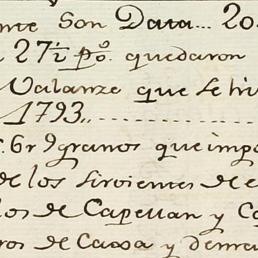 nte Son Data... 20
27½ p.º quedaron
Valanze que se hi
1793,,
6 r 9 granos que impo
de los sirvientes de e
os de Capellan y C
ros de Caxa y deme